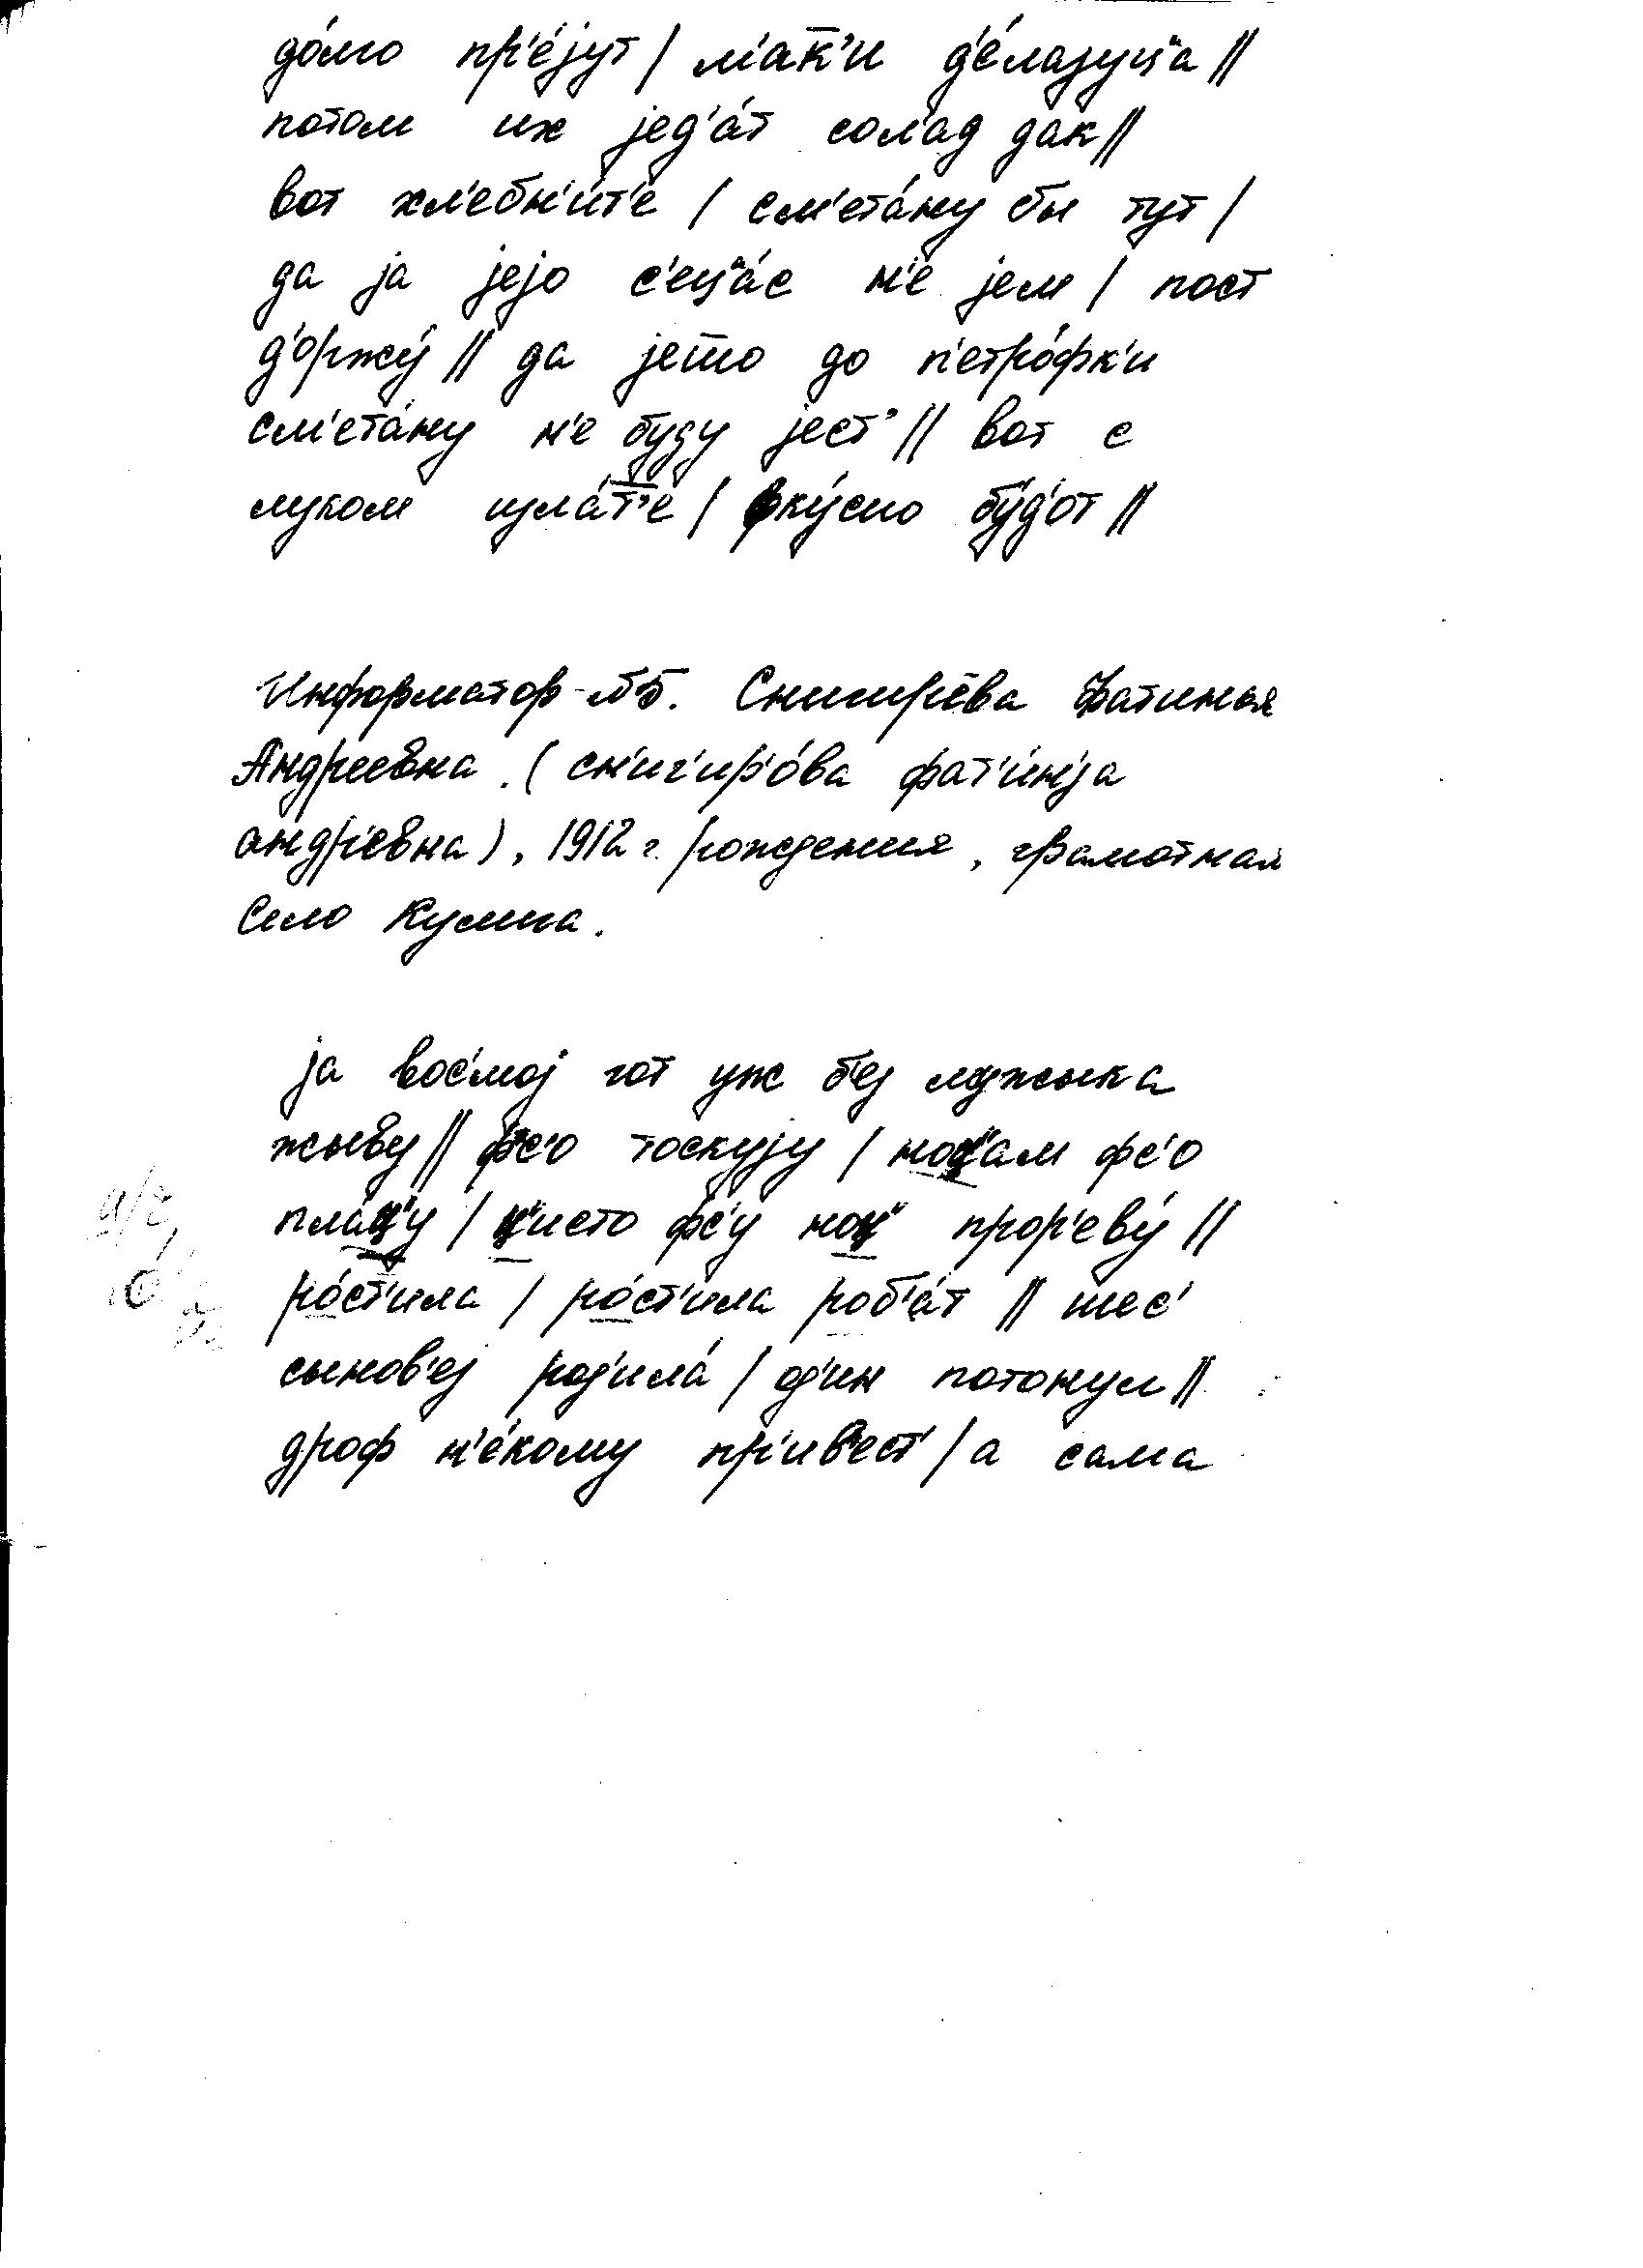 до́лго пр'е́јут / м'а́к'и д'е́лајуц"а //
потом их јед'а́т солад дак //
вот хл'ебн'и́т'е / см'ета́ну бы тут /
да ја јејо с'ец"а́с н'е јем / пост
д'оржу́ // да јешо до п'етро́фк'и
см'ета́ну н'е буду јест' // вот с
луком ула́т'е / вку́сно бу́д'от //
Информатор - №5. Снигирёва Фатинья
Андреевна. (сн'иг'ир'о́ва фат'и́нја
андр'евна), 1912 г. рождения, грамотная
Село Кулига.
ја вос'мој гот уж б'ез мужыка
жыву // фс'о тоскују / ноц"ам фс'о
плац"у / ц"исто фс'у ноц" прор'еву́ //
ро́ст'ила / ро́ст'ила роб'а́т // шес'
сынов'еј род'ила́ / од'ин потонул //
дроф н'е́кому пр'ив'ест' / а сама